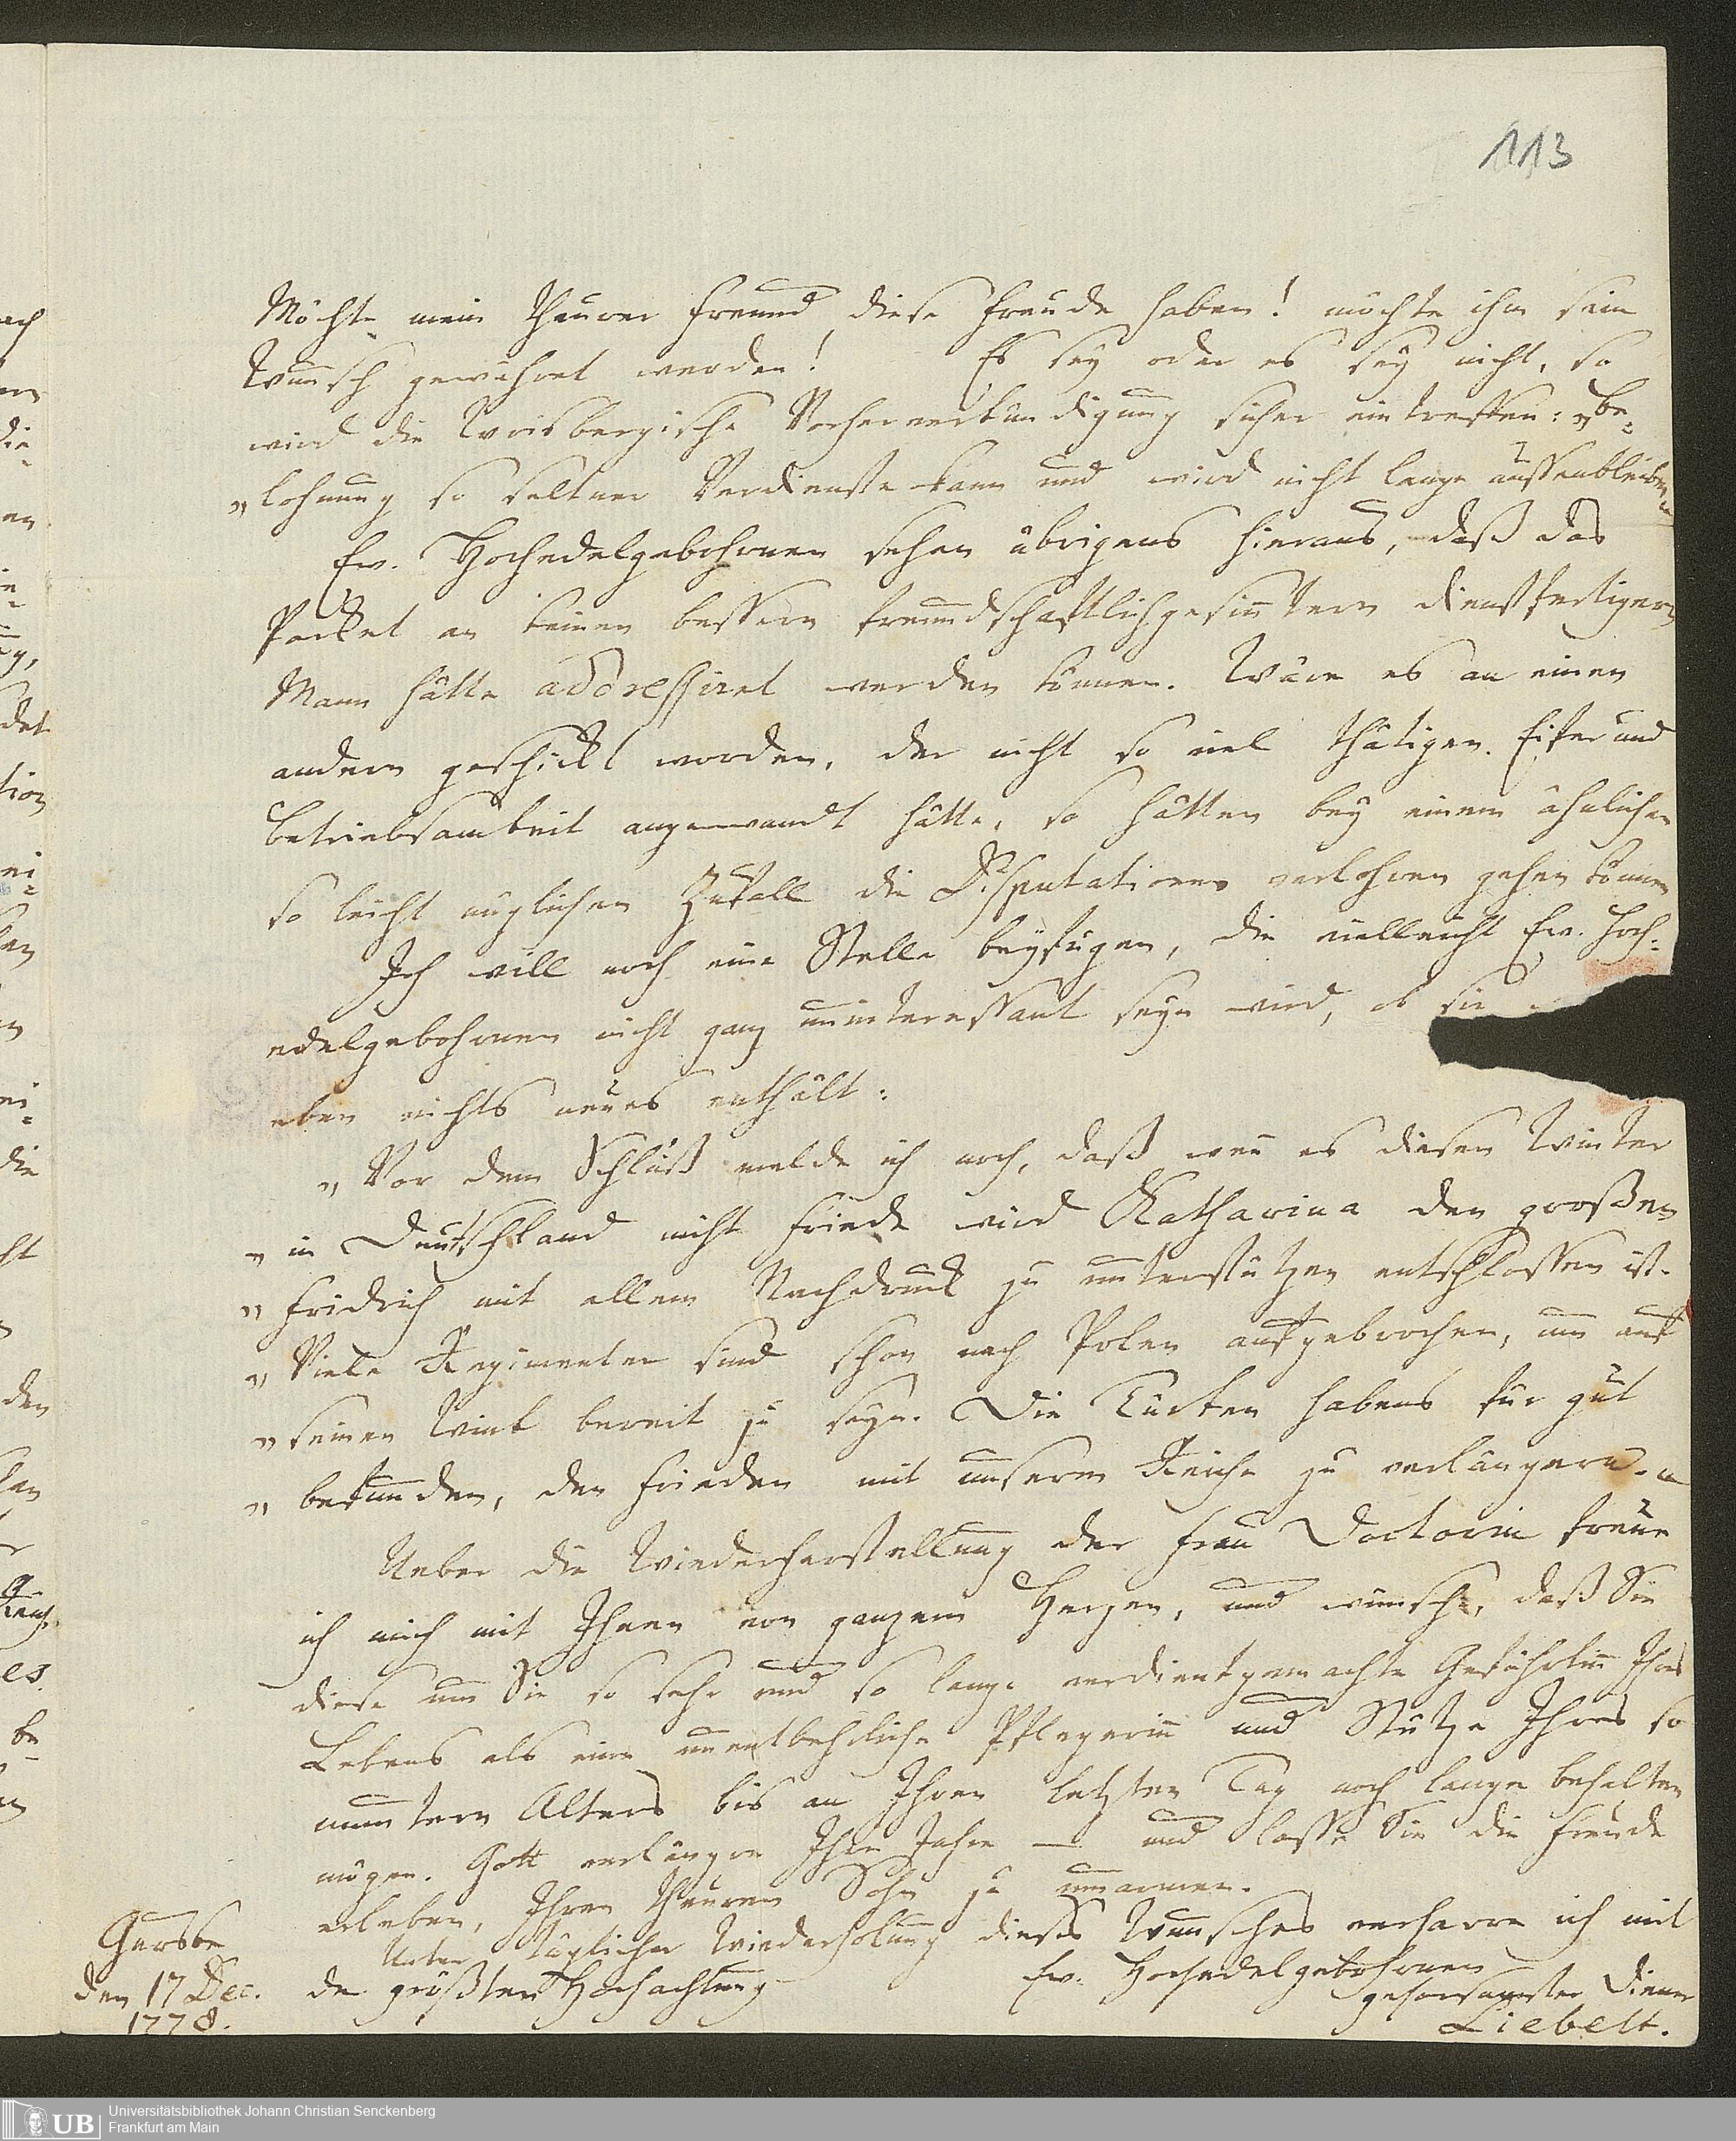 113
Möchte mein theurer Freund diese Freude haben! möchte ihm sein
Wunsch gewähret werden! Es sey oder es sey nicht, so
wird die Wrisbergische Vorherverkündigung sicher eintreffen: „Be=
„lohnung so seltner Verdienste kann und wird nicht lange aussenbleiben“
Ew. Hochedelgebohrnen sehen übrigens hieraus, daß das
Packet an keinen bessern freundschaftlichgesinntern dienstfertigern
Mann hätte addressiret werden können. Wäre es an einen
andern geschickt worden, der nicht so viel thätigen Eifer und
Betriebsamkeit angewandt hätte, so hätten bey einem ähnlichen
so leicht möglichen Zufall die Disputationes verlohren gehen können
Ich will noch eine Stelle beyfügen, die vielleicht Ew. Hoch=
edelgebohrnen nicht ganz uninteressant seyn wird, ob sie
eben nichts neues enthält:
„Vor dem Schluß melde ich noch, daß wenn es diesen Winter
„in Deutschland nicht Friede wird Katharina den großen
„Fridrich mit allem Nachdruck zu unterstützen entschlossen ist.
„Viele Regimenter sind schon nach Polen aufgebrochen, um auf
„seinen Wink bereit zu seyn. Die Türken habens für gut
„befunden, den Frieden mit unserm Reiche zu verlängern.“
Ueber die Wiederherstellung der Frau Doctorin freue
ich mich mit Ihnen von ganzem Herzen, und wünsche, daß Sie
diese um Sie so sehr und so lange verdientgemachte Gefährtinn Ihres
Lebens als eine unentbehrliche Pflegerinn und Stütze Ihres so
muntern Alters bis an Ihren letzten Tag noch lange behalten
mögen. Gott verlängre Ihre Jahre — und lasse Sie die Freude
erleben, Ihren theuren Sohn zu umarmen.
Unter täglicher Wiederholung dieses Wunsches verharre ich mit
der größten Hochachtung
Ew. Hochedelgebohrnen
gehorsamster Diener
Liebelt.
den 17 Dec.
1778.
UB
Universitätsbibliothek Johann Christian Senckenberg
Frankfurt am Main